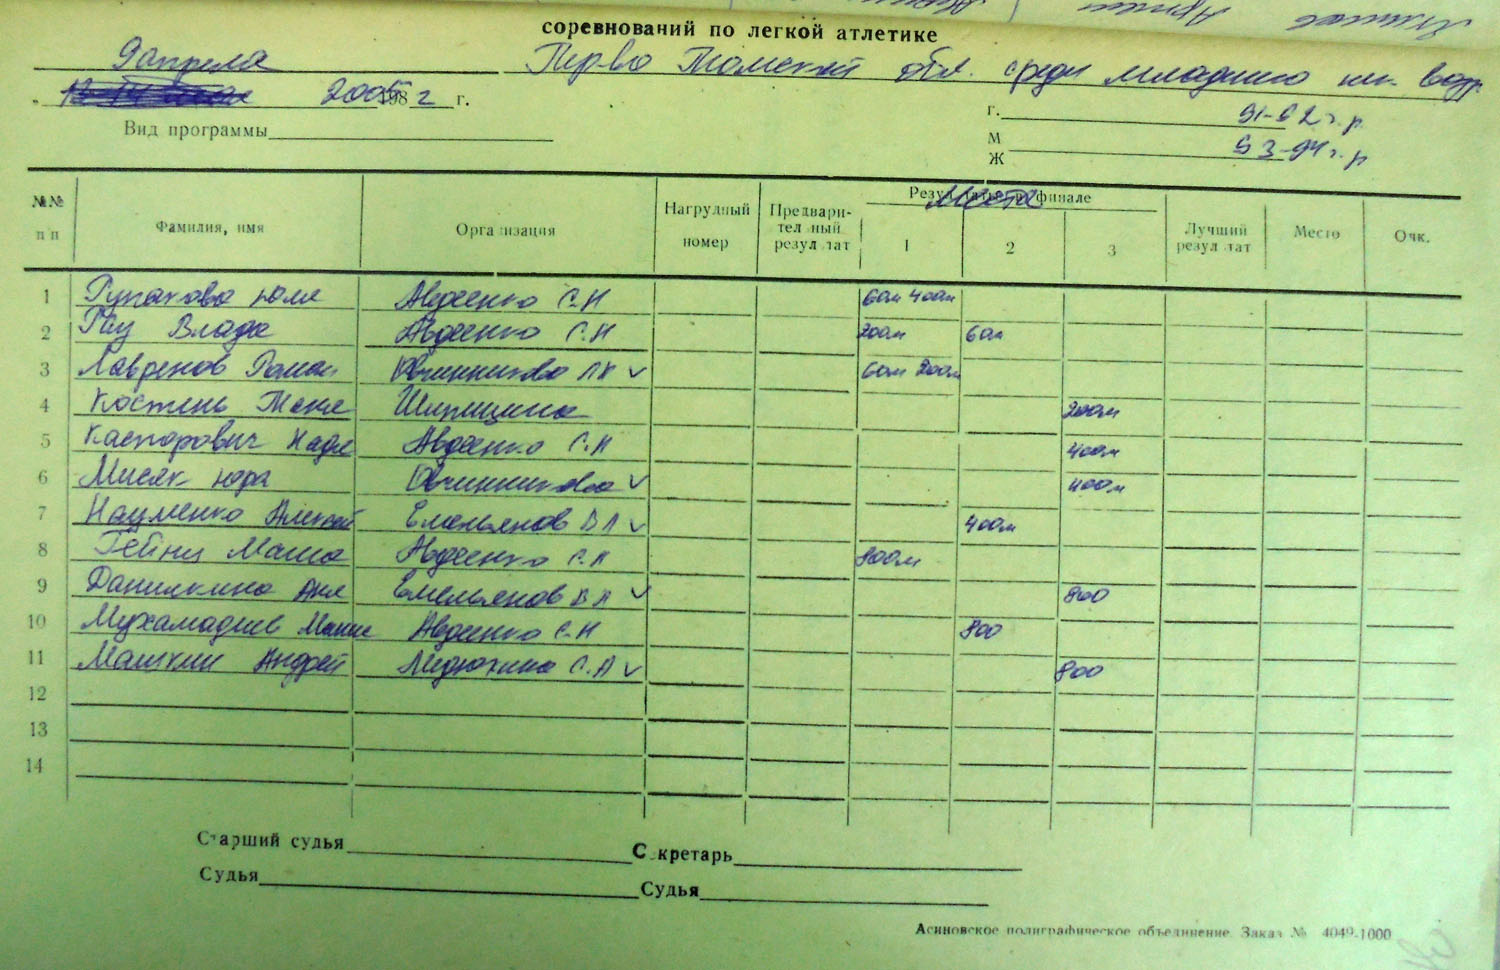 соревнований по легкой атлетике
9 апреля Перво Томской обл. среди младшего шк. возр
2005 198 г г.
г. 91-92 г.р.
Вид программы
М
Ж 93-94 г.р
№№ п п Фамилия, имя Организация Нагрудный номер Предварительный результат Места 1 2 3 Лучший результат Место Очк.
1 Юля Авдеенко С.Н 60м 400м
2 Рау Влада Авдеенко С.Н 200м 60м
3 Лавренов Роман Овчинникова ЛК ✓ 60м 200м
4 Костень Таня Шипицина 200м
5 Каспорович Надя Авдеенко С.Н 400м
6 Мисяк Юра Овчинникова ✓ 400м
7 Науменко Алексей Емельянов В Л ✓ 400м
8 Гейнц Маша Авдеенко С.Н 800м
9 Данилкина Аня Емельянов В Л ✓ 800
10 Мухамадиев Авдеенко С.Н 800
11 Машкин Андрей С.А ✓ 800
12
13
14
Старший судья Секретарь
Судья Судья
Асиновское полиграфическое объединение. Заказ № 4049-1000